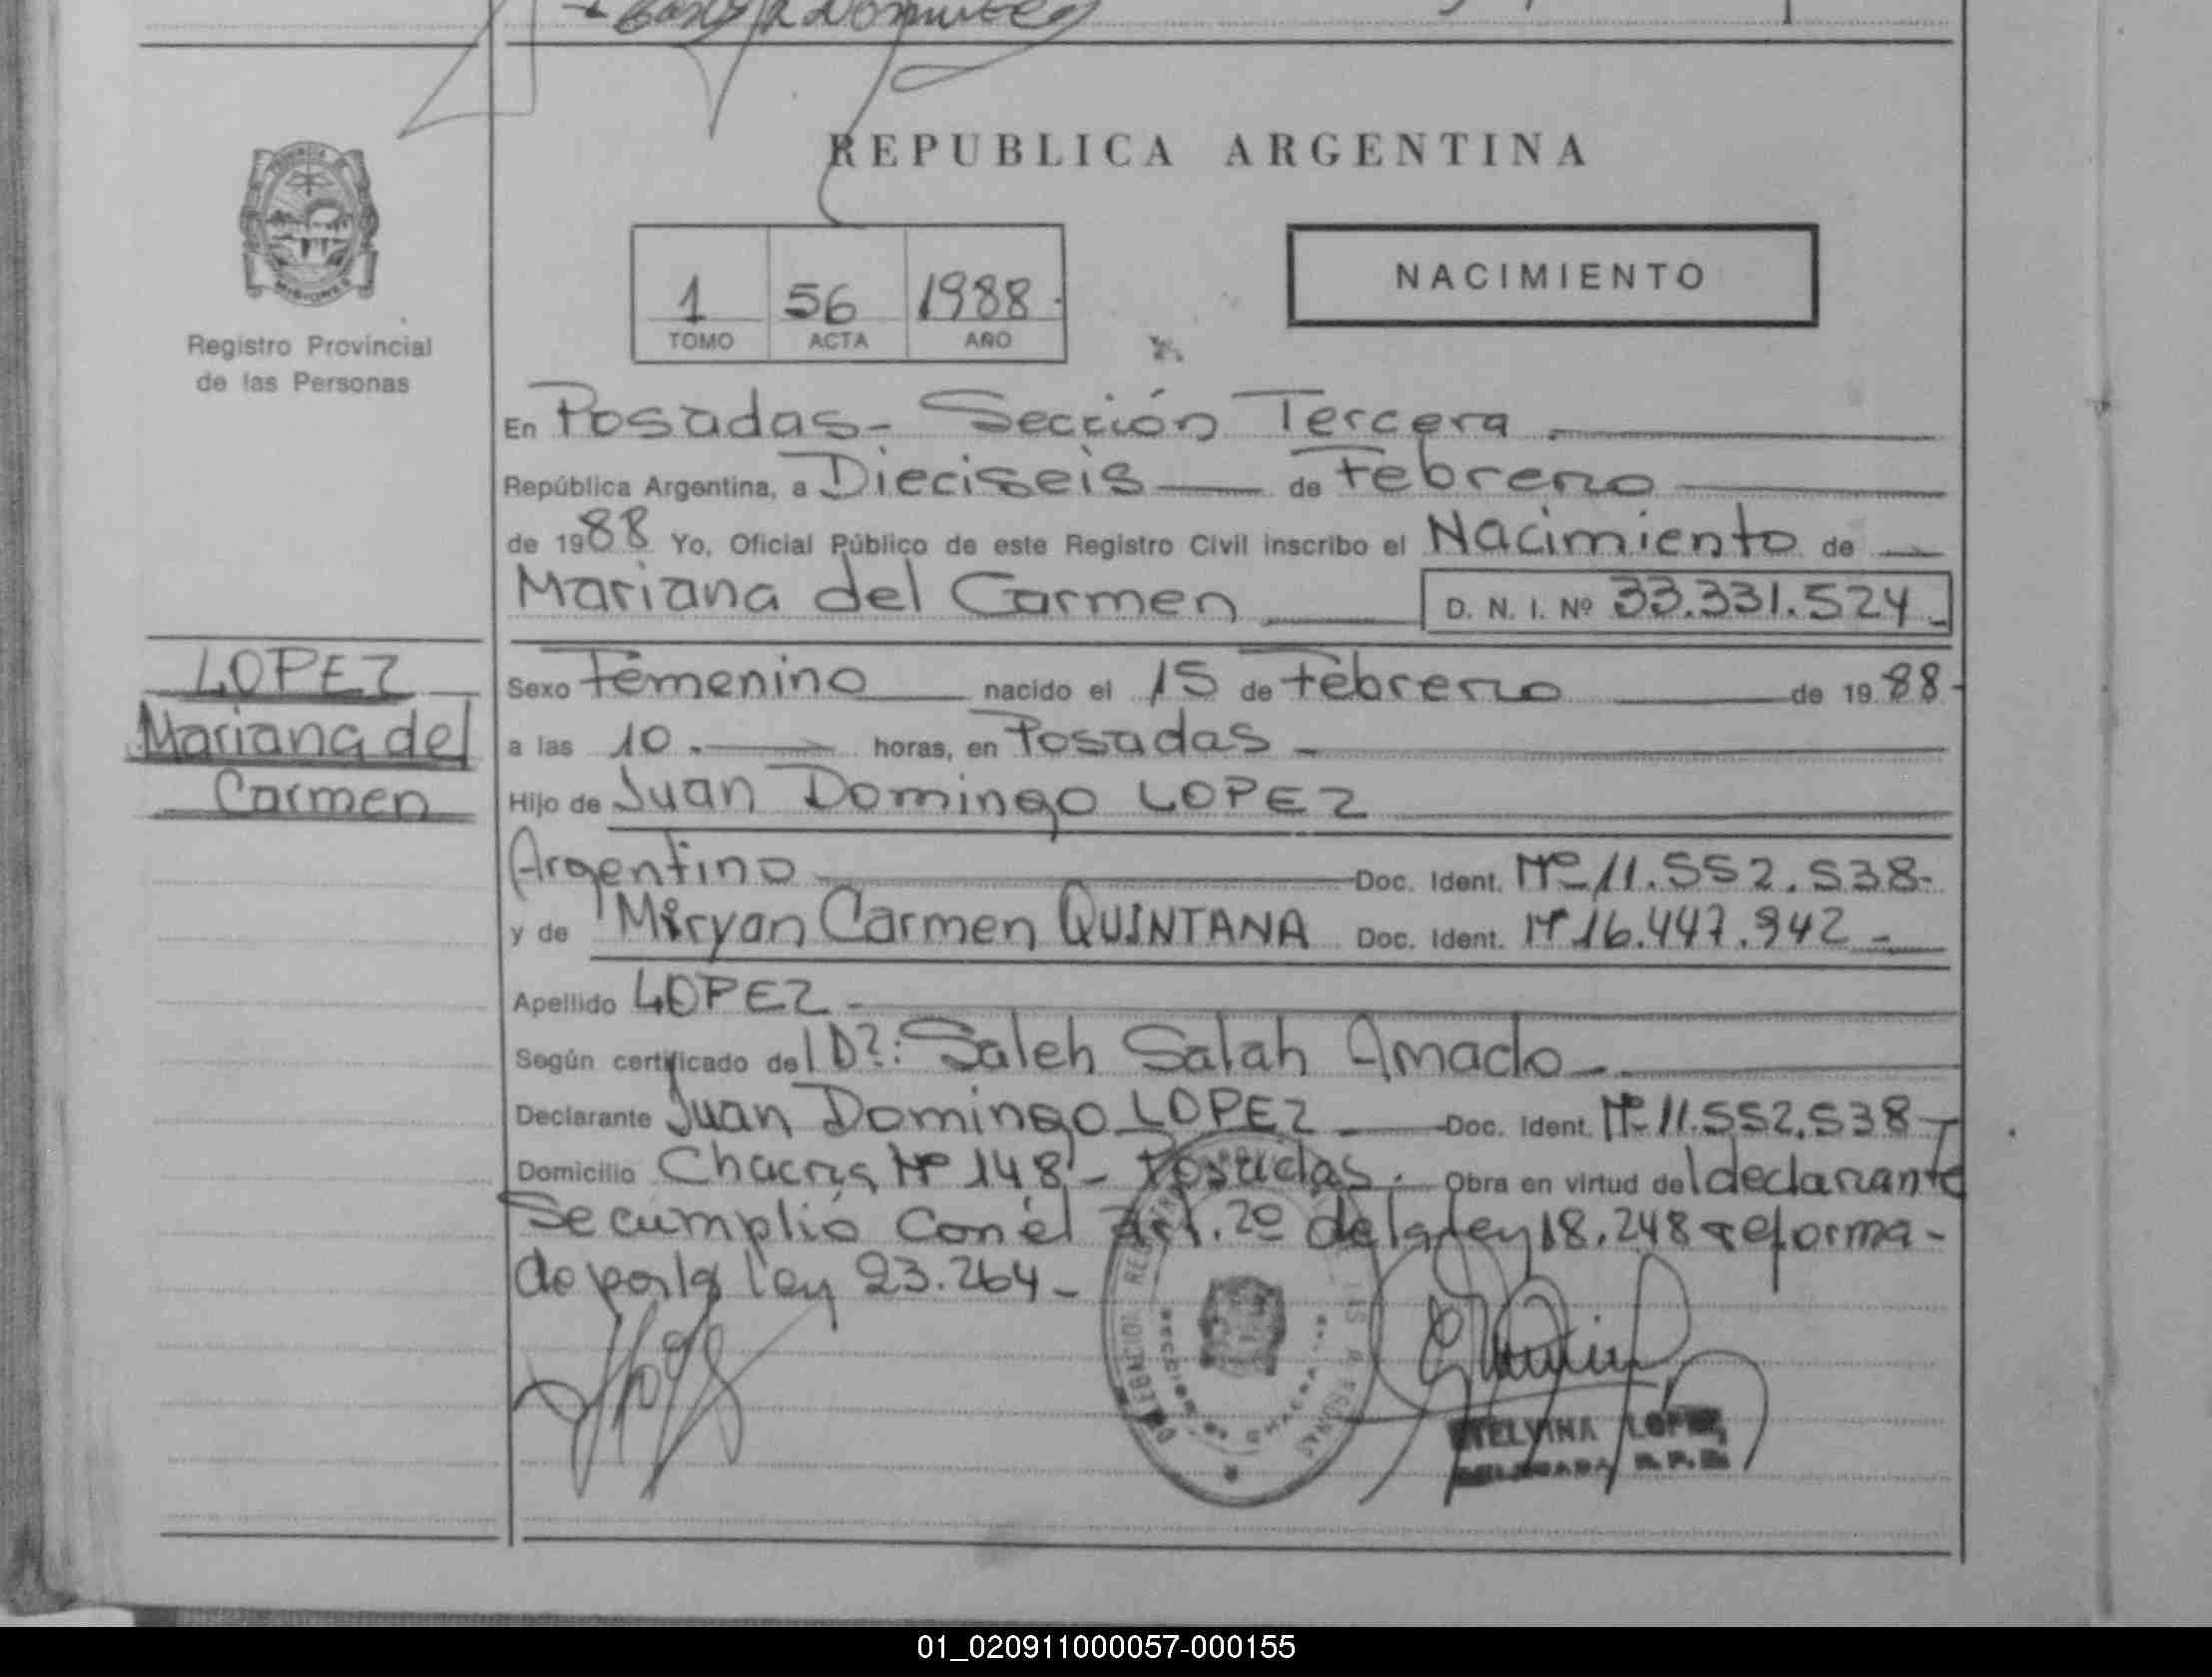 REPUBLICA ARGENTINA
PROVINCIA DE
MISIONES
Registro Provincial
de las Personas
1 56 1988
TOMO ACTA AÑO
NACIMIENTO
En Posadas - Sección Tercera
República Argentina, a Dieciseis de Febrero
de 1988 Yo, Oficial Público de este Registro Civil inscribo el Nacimiento de
Mariana del Carmen D. N. I. Nº 33.331.524
LOPEZ
Mariana del
Carmen
Sexo Femenino nacido el 15 de Febrero de 1988
a las 10. horas, en Posadas
Hijo de Juan Domingo LOPEZ
Argentino Doc. Ident. Nº 11.552.538-
y de Miryan Carmen QUINTANA Doc. Ident. Nº 16.447.942-
Apellido LOPEZ
Según certificado del Dr: Saleh Salah Amado
Declarante Juan Domingo LOPEZ Doc. Ident. Nº 11.552.538
Domicilio Chacra Nº 148 - Posadas. Obra en virtud del declarante
Se cumplió con el art. 2º de la ley 18.248 reforma-
do por la ley 23.264-
LOPEZ
01_020911000057-000155